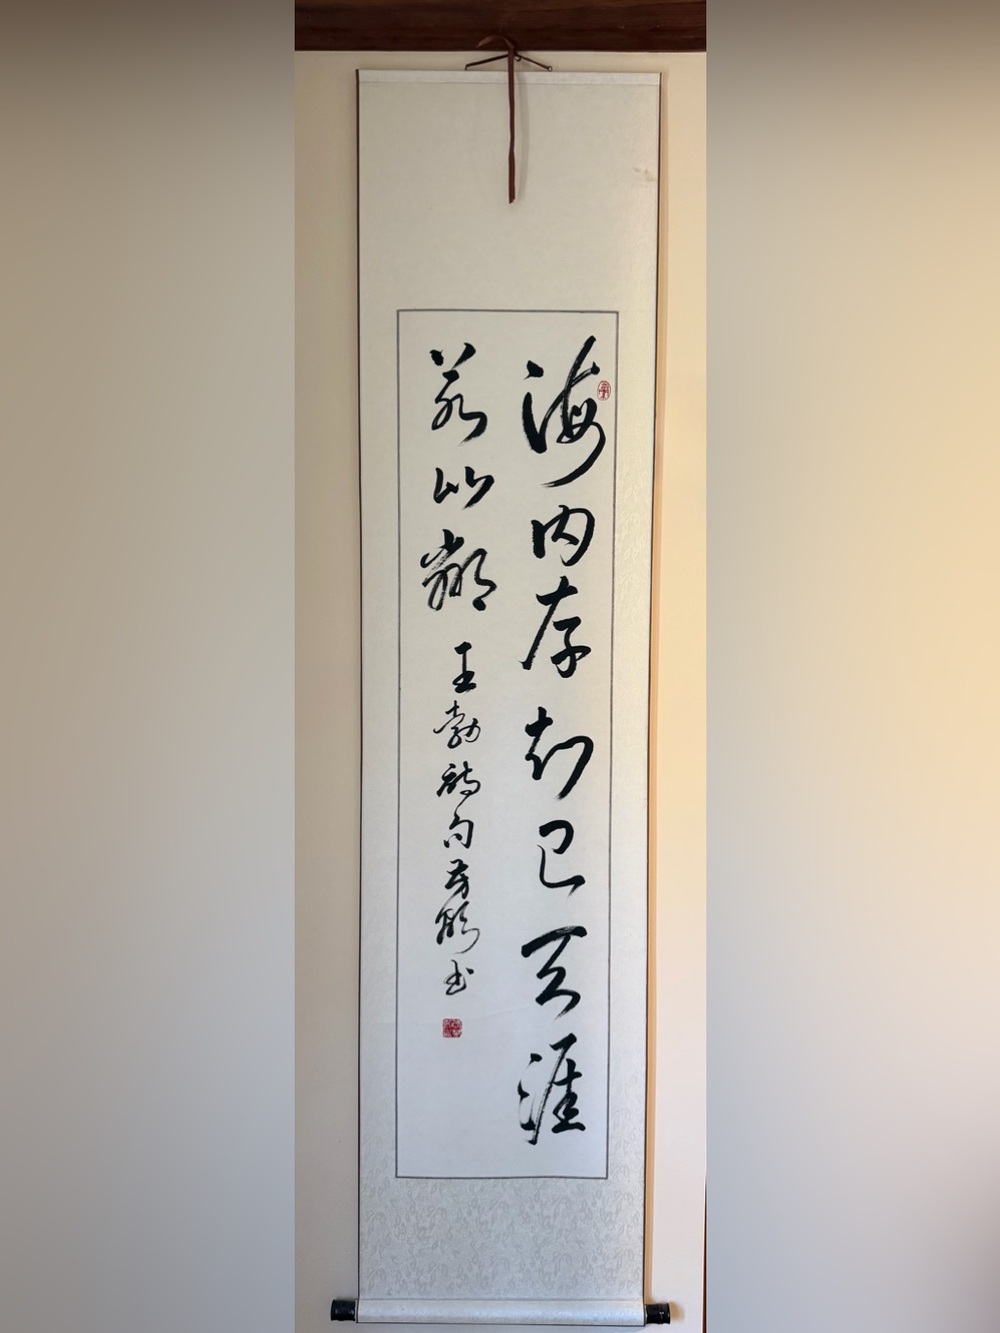 海内存知己天涯
若比鄰 王勃诗句 芳
书